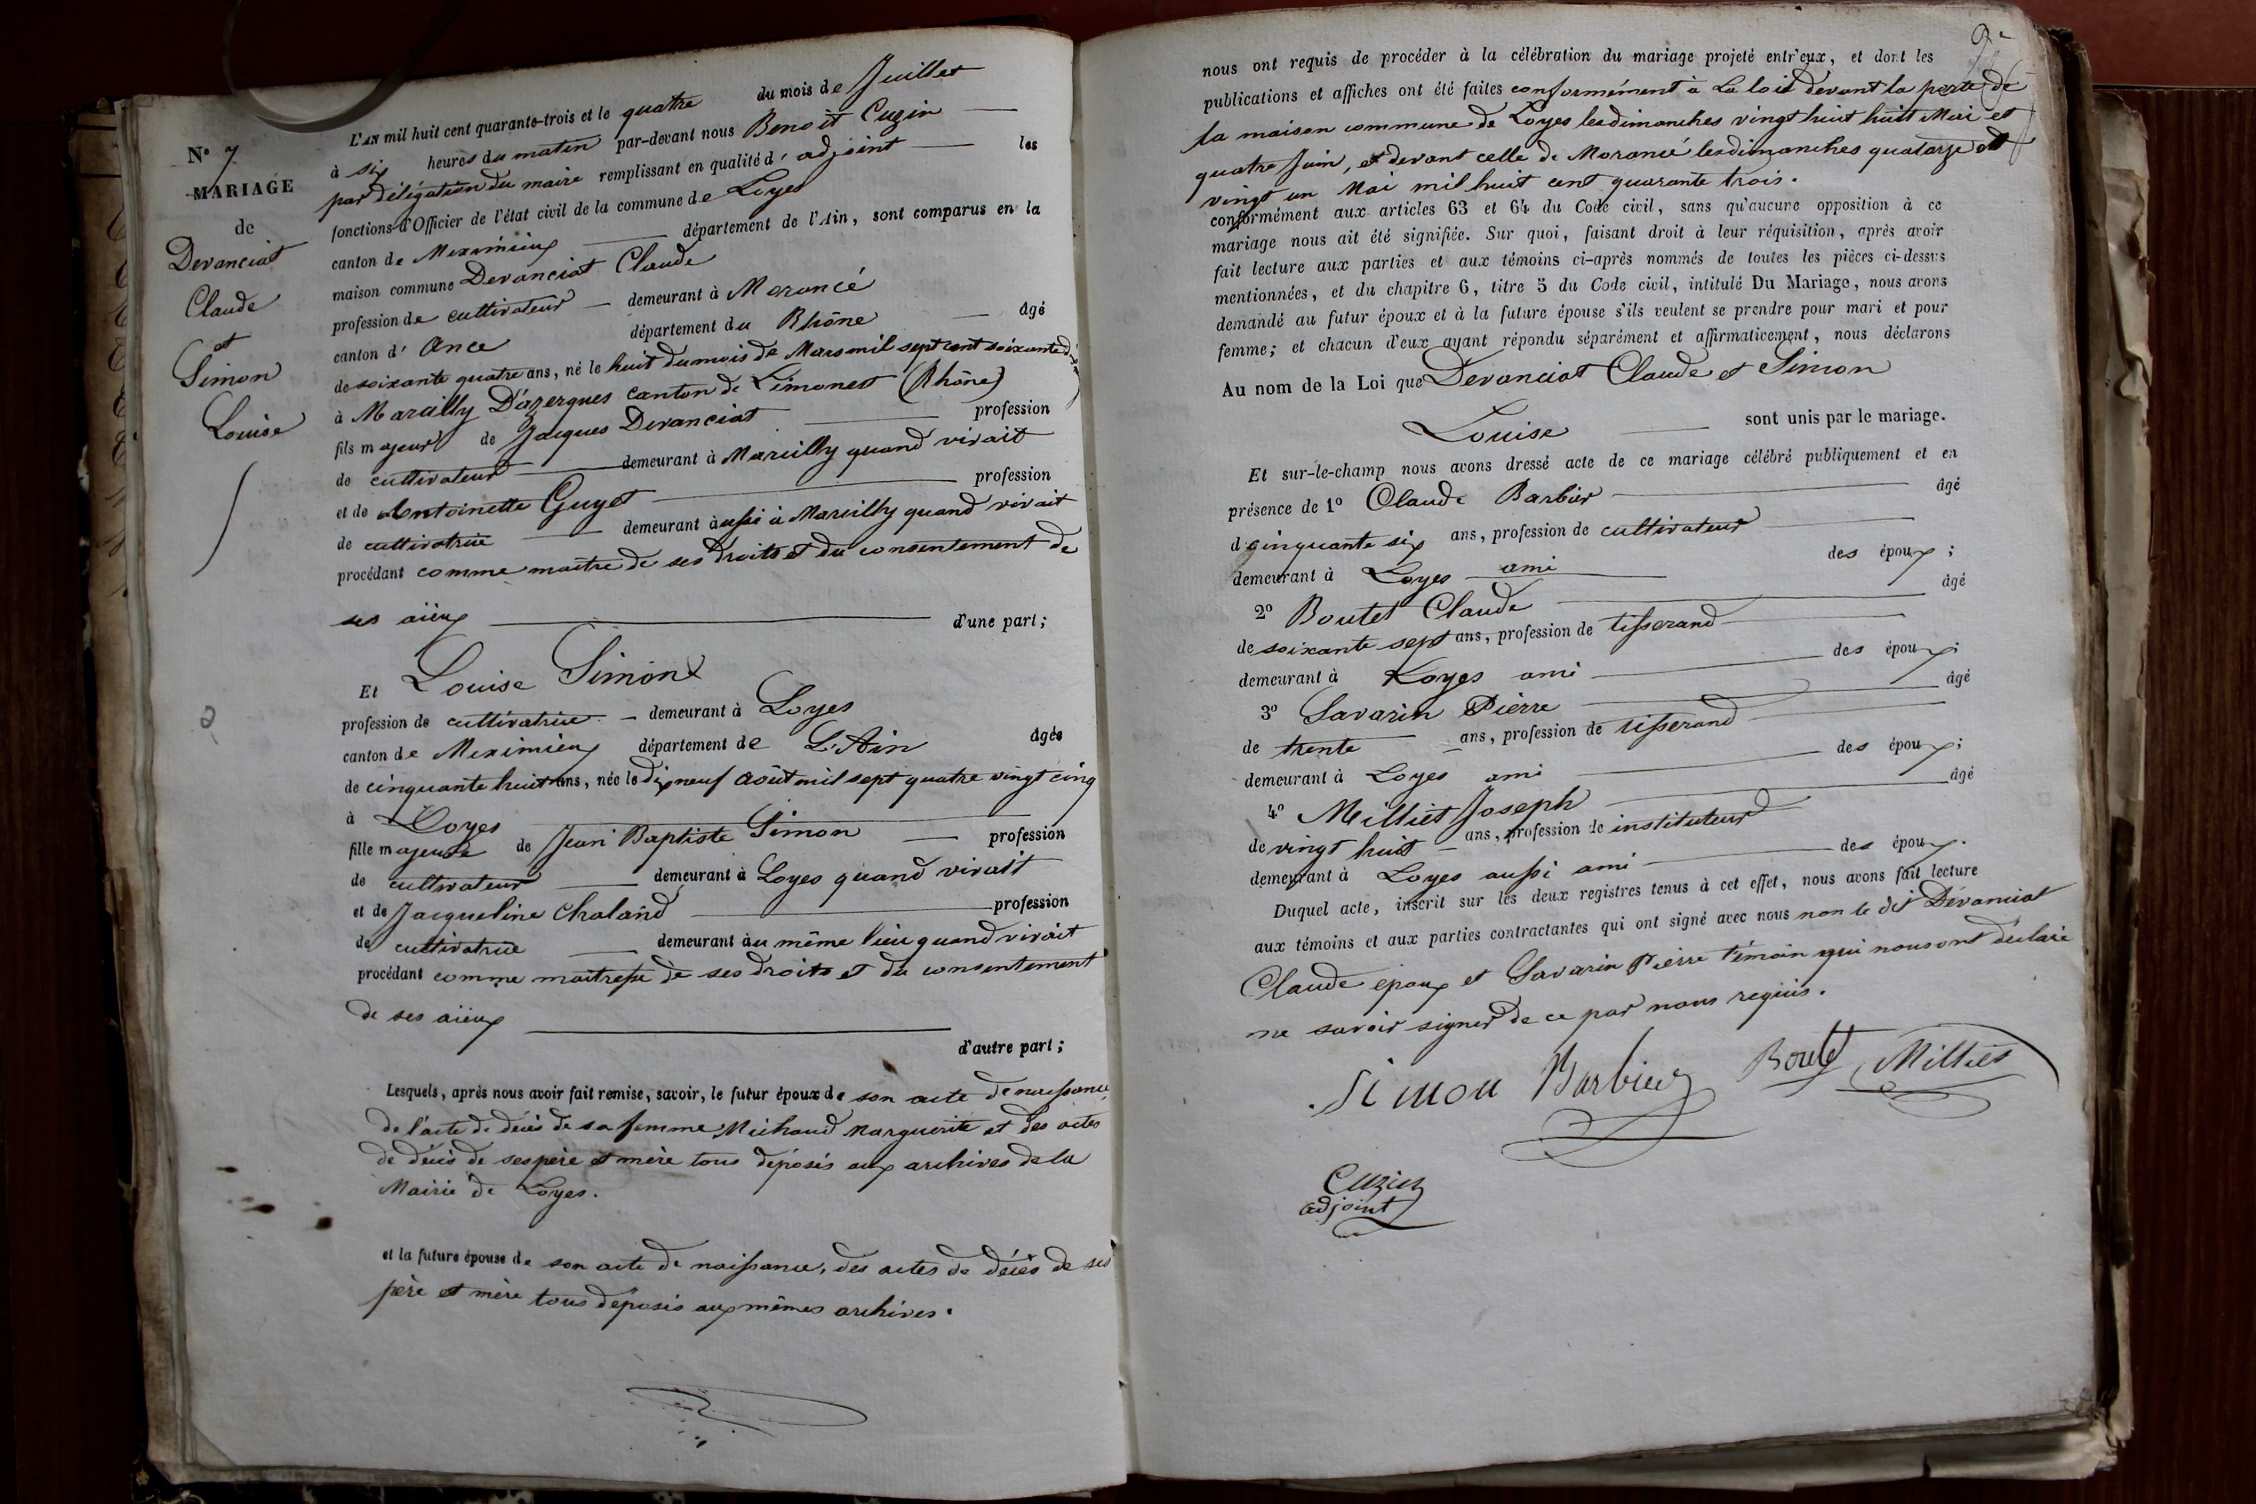 N° 7
MARIAGE
de
Devanciat
Claude
et
Simon
Louise
L'AN mil huit cent quarante-trois et le quatre du mois de Juillet
à six heures du matin par-devant nous Benoit Cuzin
par délégation du maire remplissant en qualité d' adjoint les
fonctions d'Officier de l'état civil de la commune de Loyes
canton de Meximieux département de l'Ain, sont comparus en la
maison commune Devanciat Claude
profession de cultivateur demeurant à Morancé
canton d' Anse département du Rhône âgé
de soixante quatre ans, né le huit du mois de Mars mil sept cent soixante dix
à Marcilly D'azergues canton de Limonest (Rhône)
fils majeur de Jacques Devanciat profession
de cultivateur demeurant à Marcilly quand vivait
et de Antoinette Guyot profession
de cultivatrice demeurant aussi à Marcilly quand vivait
procédant comme maître de ses droits et du consentement de
ses aïeux d'une part;
Et Louise Simon
profession de cultivatrice demeurant à Loyes
canton de Meximieux département de L'Ain âgée
de cinquante huit ans, née le dix neuf août mil sept quatre vingt cinq
à Loyes
fille majeure de Jean Baptiste Simon profession
de cultivateur demeurant à Loyes quand vivait
et de Jacqueline Chaland profession
de cultivatrice demeurant au même lieu quand vivait
procédant comme maitresse de ses droits et du consentement
de ses aïeux
d'autre part;
Lesquels, après nous avoir fait remise, savoir, le futur époux de son acte de naissance,
de l'acte de décès de sa femme Michaud Marguerite et des actes
de décès de ses père et mère tous déposés aux archives de la
Mairie de Loyes.
et la future épouse de son acte de naissance, des actes de décès de ses
père et mère tous déposés aux mêmes archives.
nous ont requis de procéder à la célébration du mariage projeté entr'eux, et dont les
publications et affiches ont été faites conformément à La loi devant la porte de
la maison commune de Loyes les dimanches vingt huit Mai et
quatre Juin, et devant celle de Morancé les dimanches quatorze et
vingt un Mai mil huit cent quarante trois.
conformément aux articles 63 et 64 du Code civil, sans qu'aucune opposition à ce
mariage nous ait été signifiée. Sur quoi, faisant droit à leur réquisition, après avoir
fait lecture aux parties et aux témoins ci-après nommés de toutes les pièces ci-dessus
mentionnées, et du chapitre 6, titre 5 du Code civil, intitulé Du Mariage, nous avons
demandé au futur époux et à la future épouse s'ils veulent se prendre pour mari et pour
femme; et chacun d'eux ayant répondu séparément et affirmativement, nous déclarons
Au nom de la Loi que Devanciat Claude et Simon
Louise sont unis par le mariage.
Et sur-le-champ nous avons dressé acte de ce mariage célébré publiquement et en
présence de 1° Claude Barbier âgé
de cinquante six ans, profession de cultivateur
demeurant à Loyes ami des époux;
2° Boutet Claude âgé
de soixante sept ans, profession de tisserand
demeurant à Loyes ami des époux;
3° Savarin Pierre âgé
de trente ans, profession de tisserand
demeurant à Loyes ami des époux;
4° Milliet Joseph âgé
de vingt huit ans, profession de instituteur
demeurant à Loyes aussi ami des époux.
Duquel acte, inscrit sur les deux registres tenus à cet effet, nous avons fait lecture
aux témoins et aux parties contractantes qui ont signé avec nous non le dit Dévanciat
Claude époux et Savarin Pierre témoin qui nous ont déclaré
ne savoir signer de ce par nous requis.
Simon Barbier Boutet Milliet
Cuzin
adjoint